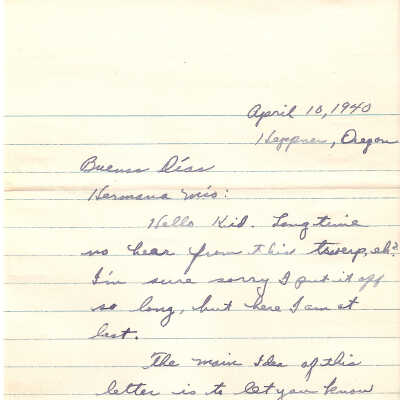 April 10, 1940
Heppner, Oregon
Buenos Días
Hermana mís:
Hello Kid. Long time
no hear from this twerp, eh?
I'm sure sorry I put it off
so long, but here I am at
last.
The main idea of this
letter is to let you know